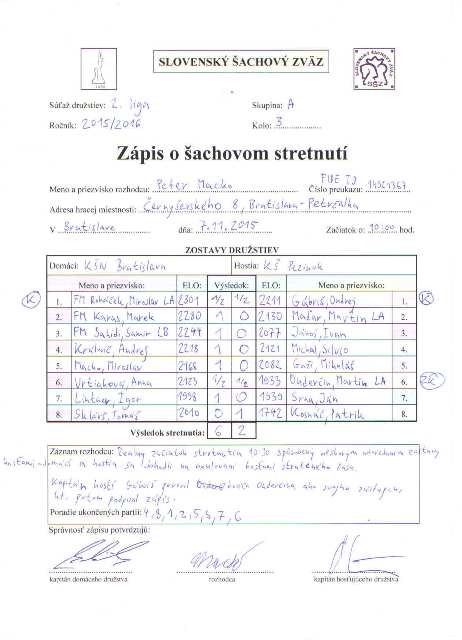 SLOVENSKÝ ŠACHOVÝ ZVÄZ
Súťaž družstiev: 2. liga
Skupina: A
Ročník: 2015/2016
Kolo: 3
Zápis o šachovom stretnutí
FIDE ID
Meno a priezvisko rozhodcu: Peter Macko Číslo preukazu:
Adresa hracej miestnosti: Černyševského 8, Bratislava-Petržalka
V Bratislave dňa: 7.11.2015 Začiatok o: 10:00 hod.
ZOSTAVY DRUŽSTIEV
Domáci: KŠN Bratislava Hostia: KŠ Pezinok
Meno a priezvisko: ELO: Výsledok: ELO: Meno a priezvisko:
K 1. FM Miroslav LA 2301 1/2 1/2 2211 Gábriš, Ondrej 1. K
2. FM Karas, Marek 2280 1 0 2130 Maťar, Martin LA 2.
3. FM Sahidi, Samir LB 2244 1 0 2077 Ivan 3.
4. Andrej 2218 1 0 2121 Michal 4.
5. Macko, Miroslav 2168 1 0 2082 Mikuláš 5.
6. Vrtiaková, Anna 2123 1/2 1/2 1033 Ondercin, Martin LA 6. ZK
7. Igor 1998 1 0 1935 Ján 7.
8. Sklárs, Tomáš 2010 0 1 1742 Patrik 8.
Výsledok stretnutia: 6 2
Záznam rozhodcu: začiatok stretnutia 10:30 spôsobený
domáci a hostia sa na strateného času.
Kapitán hostí Gábriš poveril Ondercina, ako svojho zástupcu,
potom podpísal zápis.
Poradie ukončených partií: 4, 8, 1, 2, 5, 3, 7, 6
Správnosť zápisu potvrdzujú:
kapitán domáceho družstva rozhodca kapitán hosťujúceho družstva